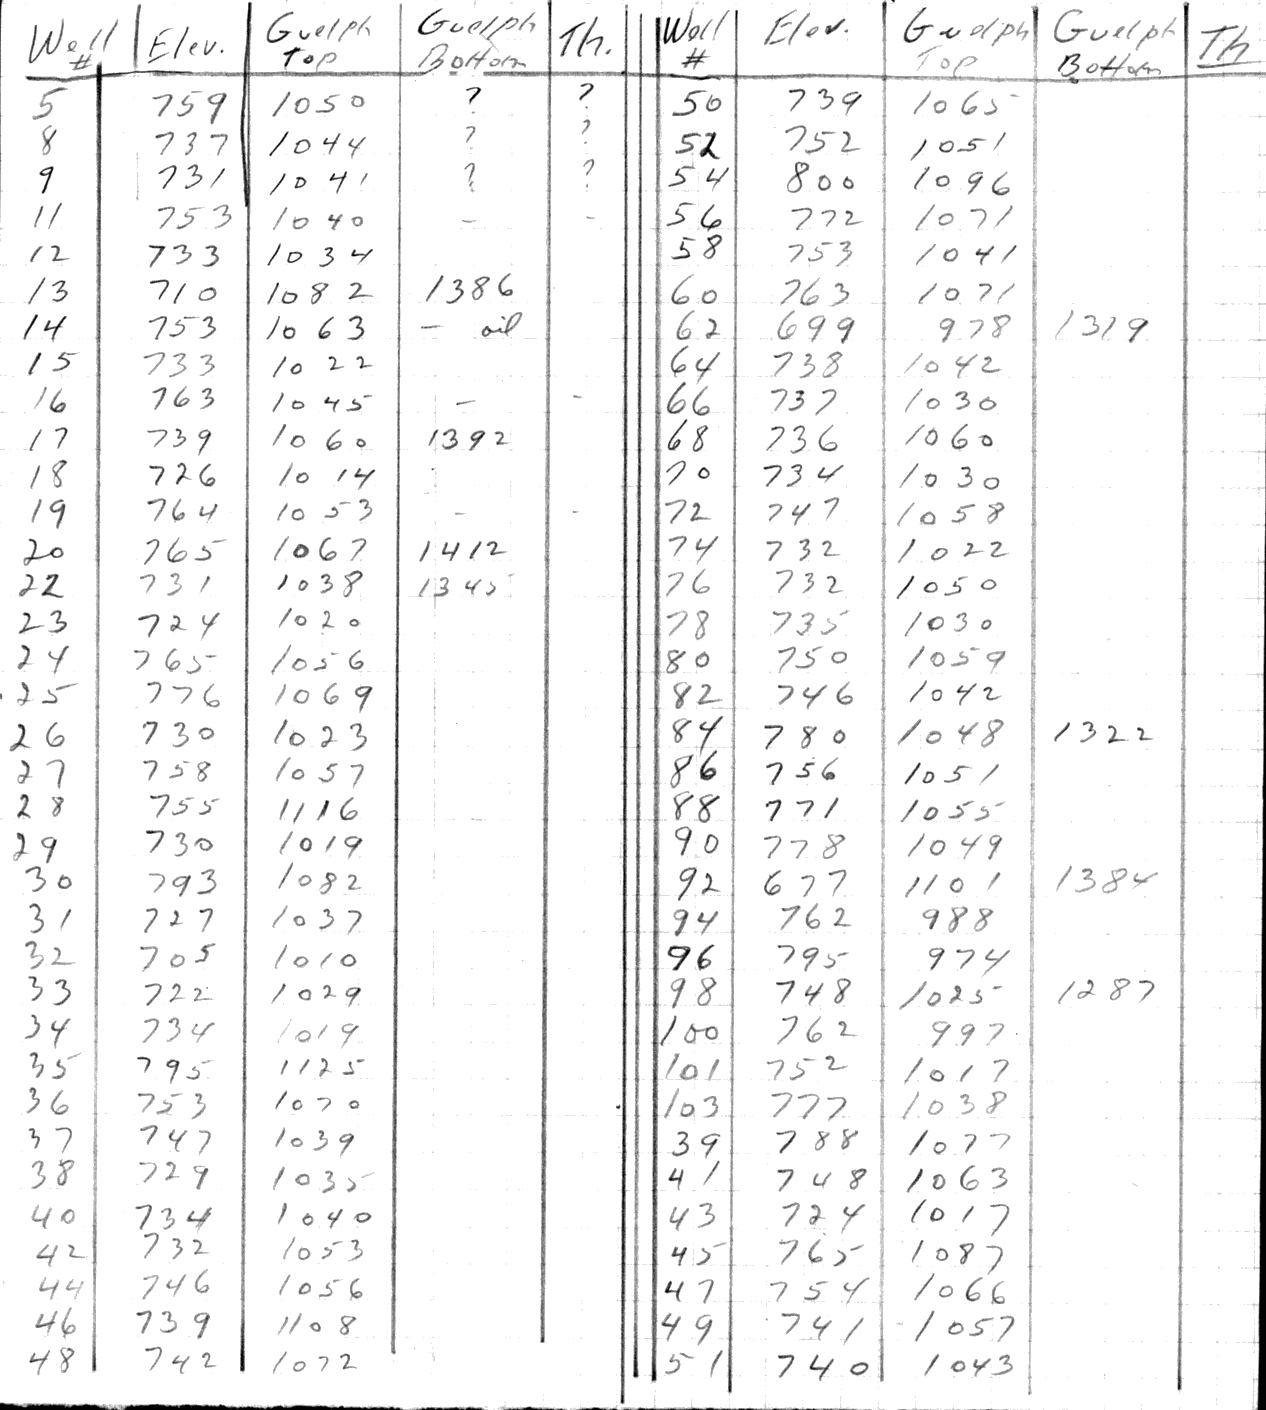 Well # Elev. Guelph Top Guelph Bottom Th. Well # Elev. Guelph Top Guelph Bottom Th
5 759 1050 ? ? 50 739 1065
8 737 1044 ? ? 52 752 1051
9 731 1041 ? ? 54 800 1096
11 753 1040 - - 56 772 1071
12 733 1034 58 753 1041
13 710 1082 1386 60 763 1071
14 753 1063 - oil 62 699 978 1319
15 733 1022 64 738 1042
16 763 1045 - - 66 737 1030
17 739 1060 1392 68 736 1060
18 726 1014 70 734 1030
19 764 1053 - - 72 747 1058
20 765 1067 1412 74 732 1022
22 731 1038 1345 76 732 1050
23 724 1020 78 735 1030
24 765 1056 80 750 1059
25 776 1069 82 746 1042
26 730 1023 84 780 1048 1322
27 758 1057 86 756 1051
28 755 1116 88 771 1055
29 730 1019 90 778 1049
30 793 1082 92 677 1101 1384
31 727 1037 94 762 988
32 705 1010 96 795 974
33 722 1029 98 748 1025 1287
34 734 1019 100 762 997
35 795 1125 101 752 1017
36 753 1070 103 777 1038
37 747 1039 39 788 1077
38 729 1035 41 748 1063
40 734 1040 43 724 1017
42 732 1053 45 765 1087
44 746 1056 47 754 1066
46 739 1108 49 741 1057
48 742 1072 51 740 1043